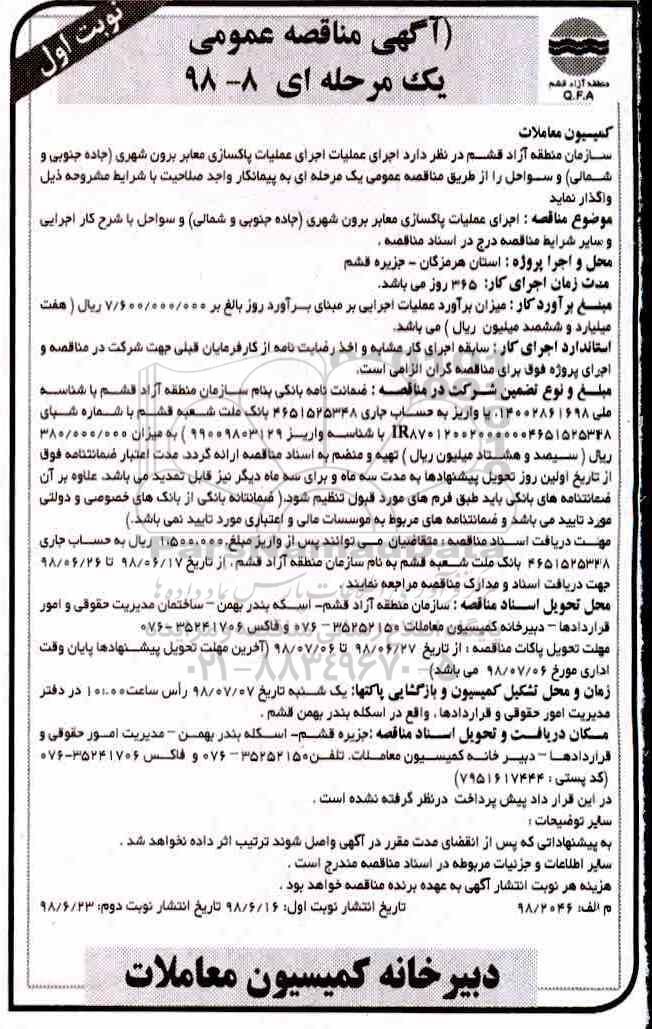 نوبت اول
(آگهی مناقصه عمومی
یک مرحله ای ۸- ۹۸
منطقه آزاد قشم
Q.F.A
کمیسیون معاملات
سازمان منطقه آزاد قشم در نظر دارد اجرای عملیات اجرای عملیات پاکسازی معابر برون شهری (جاده جنوبی و
شمالی) و سواحل را از طریق مناقصه عمومی یک مرحله ای به پیمانکار واجد صلاحیت با شرایط مشروحه ذیل
واگذار نماید
موضوع مناقصه : اجرای عملیات پاکسازی معابر برون شهری (جاده جنوبی و شمالی) و سواحل با شرح کار اجرایی
و سایر شرایط مناقصه درج در اسناد مناقصه .
محل و اجرا پروژه : استان هرمزگان - جزیره قشم
مدت زمان اجرای کار: ۳۶۵ روز می باشد.
مبلغ برآورد کار : میزان برآورد عملیات اجرایی بر مبنای برآورد روز بالغ بر ۷/۶۰۰/۰۰۰/۰۰۰ ریال ( هفت
میلیارد و ششصد میلیون ریال ) می باشد.
استاندارد اجرای کار : سابقه اجرای کار مشابه و اخذ رضایت نامه از کارفرمایان قبلی جهت شرکت در مناقصه و
اجرای پروژه فوق برای مناقصه گران الزامی است.
مبلغ و نوع تضمین شرکت در مناقصه : ضمانت نامه بانکی بنام سازمان منطقه آزاد قشم با شناسه
ملی ۱۴۰۰۲۸۶۱۶۹۸، یا واریز به حساب جاری ۴۶۵۱۵۲۵۳۴۸ بانک ملت شعبه قشم با شماره شبای
IR۸۷۰۱۲۰۰۲۰۰۰۰۰۰۴۶۵۱۵۲۵۳۴۸ با شناسه واریز ۹۹۰۰۹۸۰۳۱۲۹ ) به میزان ۳۸۰/۰۰۰/۰۰۰
ریال ( سیصد و هشتاد میلیون ریال ) تهیه و منضم به اسناد مناقصه ارائه گردد. مدت اعتبار ضمانتنامه فوق
از تاریخ اولین روز تحویل پیشنهادها به مدت سه ماه و برای سه ماه دیگر نیز قابل تمدید می باشد. علاوه بر آن
ضمانتنامه های بانکی باید طبق فرم های مورد قبول تنظیم شود.( ضمانتانه بانکی از بانک های خصوصی و دولتی
مورد تایید می باشد و ضمانتنامه های مربوط به موسسات مالی و اعتباری مورد تایید نمی باشد.)
مهلت دریافت اسناد مناقصه : متقاضیان می توانند پس از واریز مبلغ ۱،۵۰۰،۰۰۰ ریال به حساب جاری
۴۶۵۱۵۲۵۳۴۸ بانک ملت شعبه قشم به نام سازمان منطقه آزاد قشم ، از تاریخ ۹۸/۰۶/۱۷ تا ۹۸/۰۶/۲۶
جهت دریافت اسناد و مدارک مناقصه مراجعه نمایند .
محل تحویل اسناد مناقصه : سازمان منطقه آزاد قشم- اسکه بندر بهمن – ساختمان مدیریت حقوقی و امور
قراردادها – دبیرخانه کمیسیون معاملات ۳۵۲۵۲۱۵۰ – ۰۷۶ و فاکس ۳۵۲۴۱۷۰۶ -۰۷۶
مهلت تحویل پاکات مناقصه : از تاریخ ۹۸/۰۶/۲۷ تا ۹۸/۰۷/۰۶ (آخرین مهلت تحویل پیشنهادها پایان وقت
اداری مورخ ۹۸/۰۷/۰۶ می باشد)
زمان و محل تشکیل کمیسیون و بازگشایی پاکتها: یک شنبه تاریخ ۹۸/۰۷/۰۷ رأس ساعت ۱۰:۰۰ در دفتر
مدیریت امور حقوقی و قراردادها ، واقع در اسکله بندر بهمن قشم .
مکان دریافت و تحویل اسناد مناقصه :جزیره قشم- اسکله بندر بهمن – مدیریت امور حقوقی و
قراردادها – دبیر خانه کمیسیون معاملات. تلفن۳۵۲۵۲۱۵۰ – ۰۷۶ و فاکس ۳۵۲۴۱۷۰۶-۰۷۶
(کد پستی : ۷۹۵۱۶۱۷۴۴۴)
در این قرار داد پیش پرداخت درنظر گرفته نشده است .
سایر توضیحات :
به پیشنهاداتی که پس از انقضای مدت مقرر در آگهی واصل شوند ترتیب اثر داده نخواهد شد .
سایر اطلاعات و جزئیات مربوطه در اسناد مناقصه مندرج است .
هزینه هر نوبت انتشار آگهی به عهده برنده مناقصه خواهد بود .
م الف: ۹۸/۲۰۴۶ تاریخ انتشار نوبت اول: ۹۸/۶/۱۶ تاریخ انتشار نوبت دوم: ۹۸/۶/۲۳
دبیرخانه کمیسیون معاملات
ParsNamadData
۰۲۱-۸۸۳۴۹۶۷۰-۵